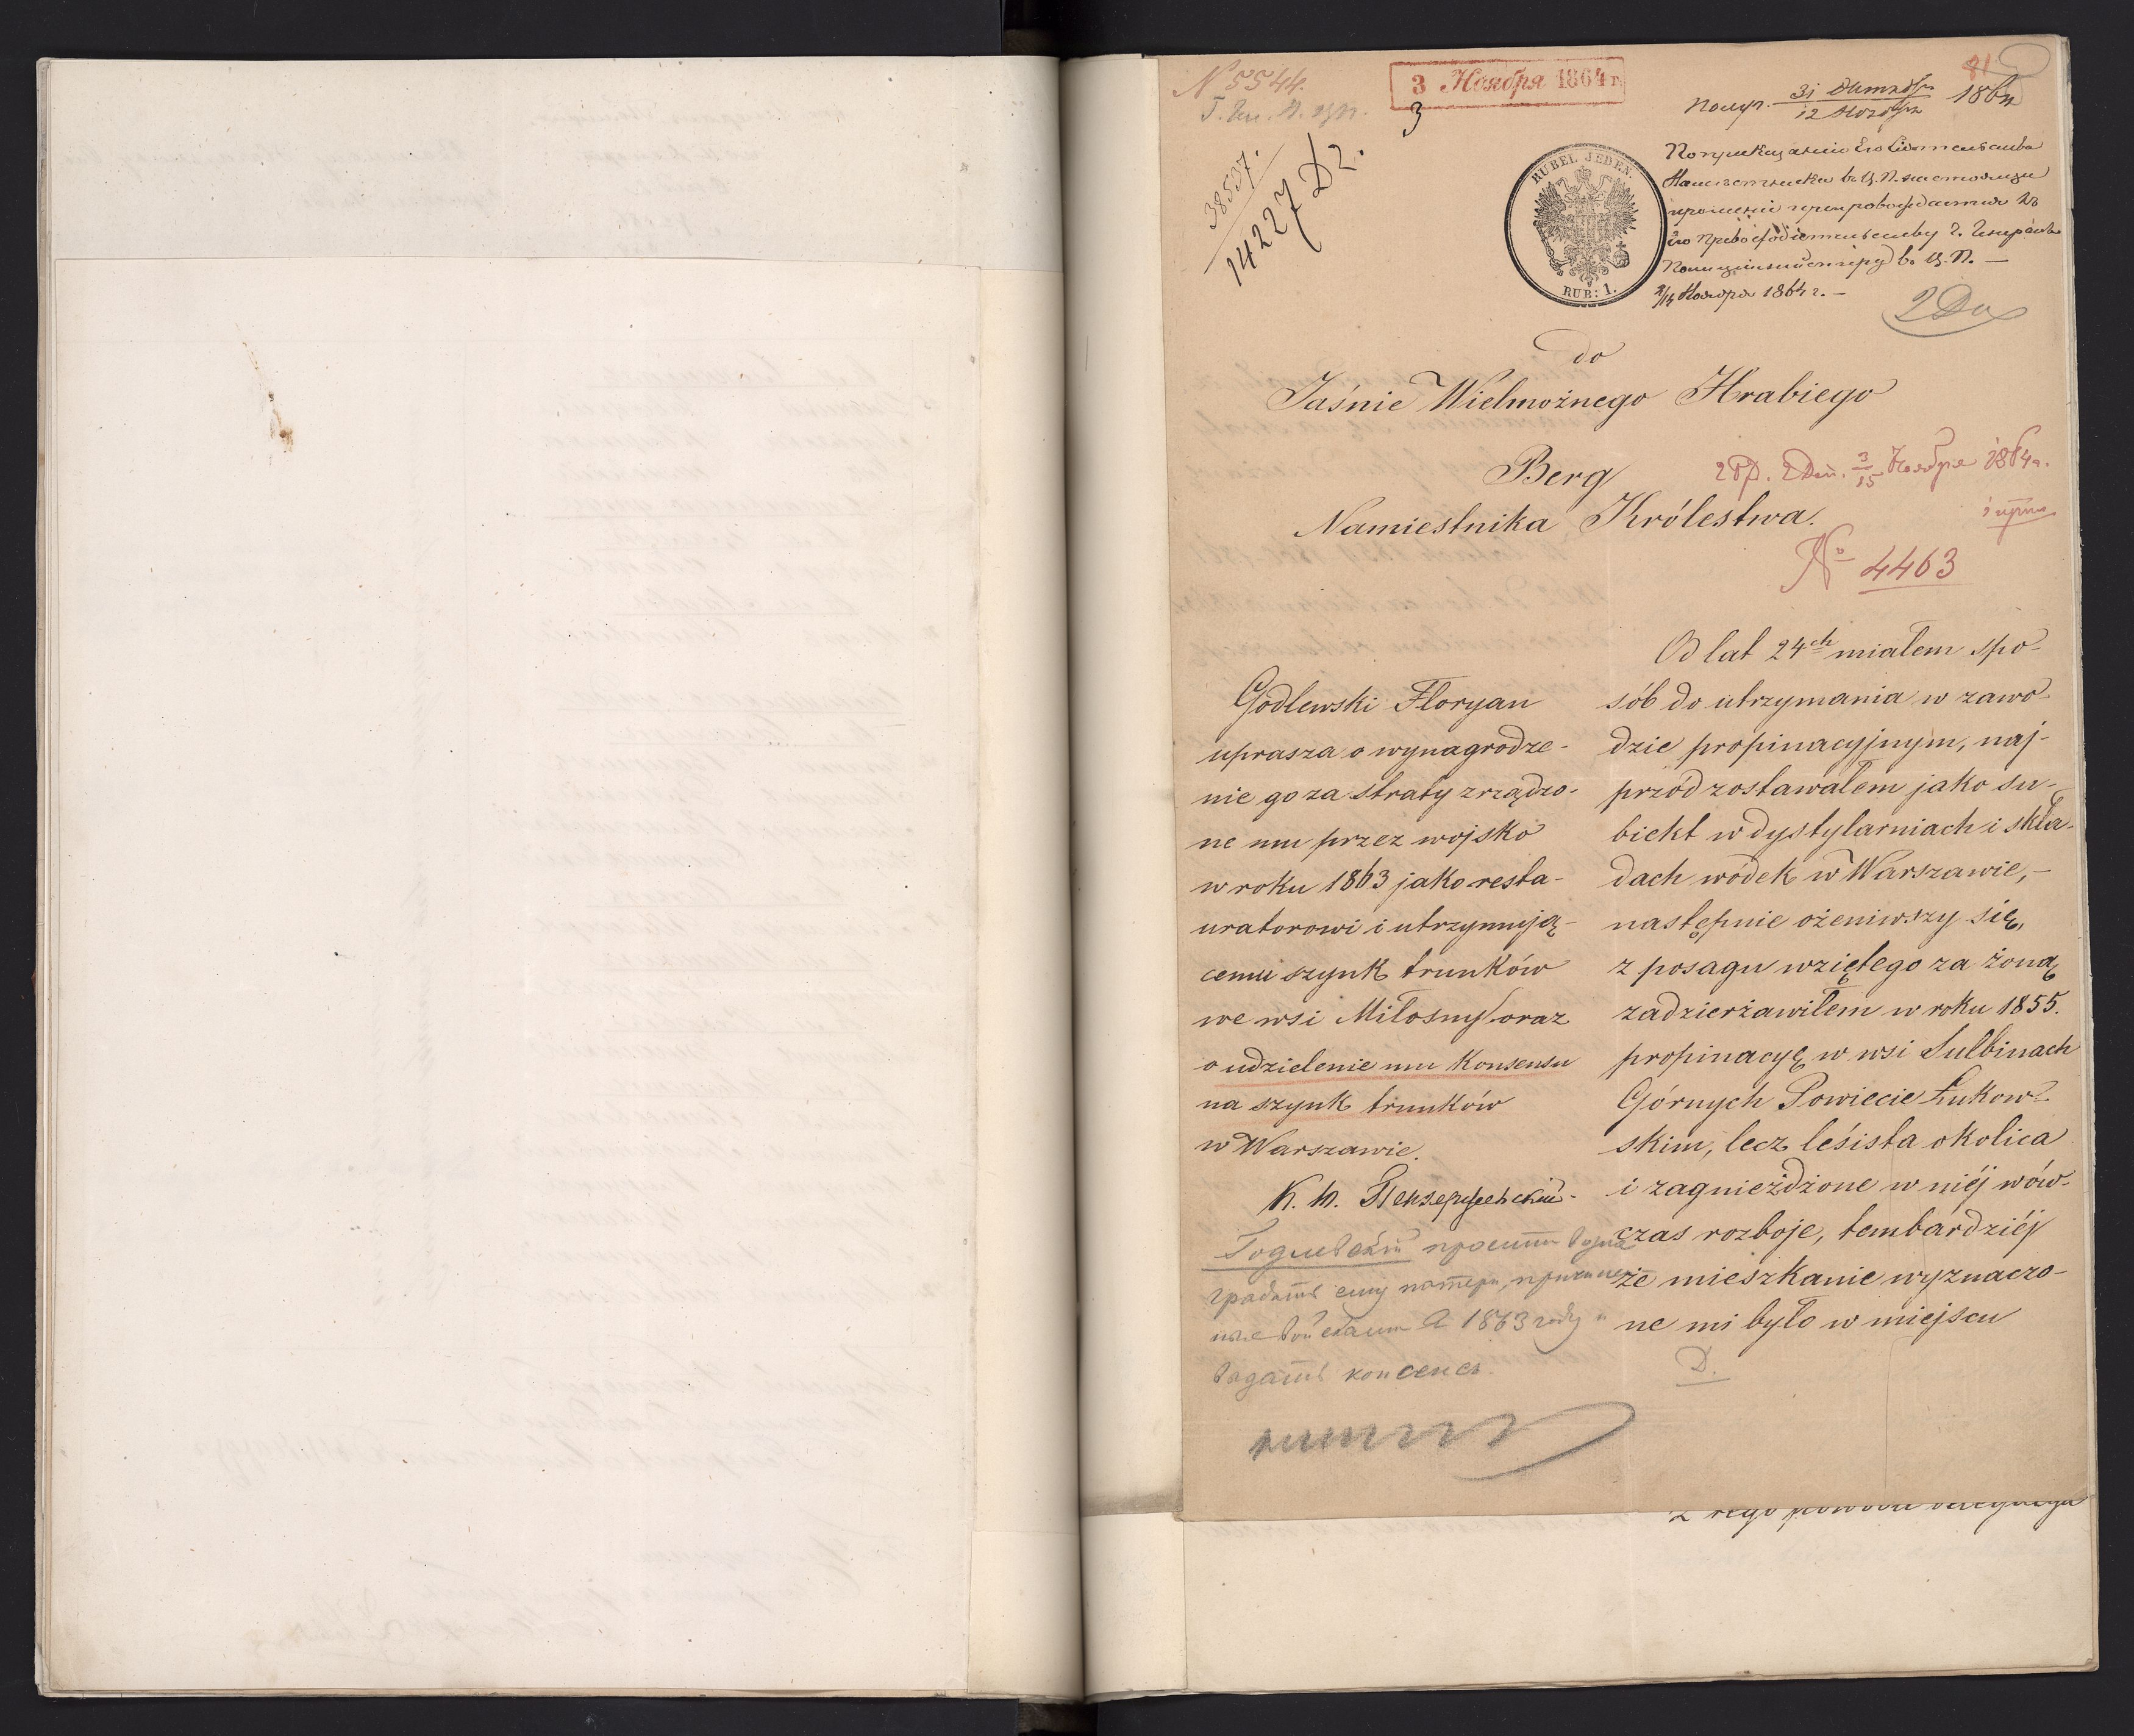 N 5544.
3 Ноября 1864 г.
3
81
Получ. 31 Октября / 12 Ноября 1864
38537.
14227 D2.
RUBEL JEDEN.
RUB: 1.
По приказанию Его Сиятельства
Наместника в Ц. П. настоящее
прошение препровождается къ
Его Превосходительству Г. Генералъ
Полицiймейстеру в Ц. П. —
2/14 Ноября 1864 г. —
do
Jaśnie Wielmożnego Hrabiego
Berg
3/15 Ноября 1864 г.
Namiestnika Królestwa.
№ 4463
Godlewski Floryan
uprasza o wynagrodze-
nie go za straty zrządzo-
ne mu przez wojsko
w roku 1863 jako resta-
uratorowi i utrzymują-
cemu szynk trunków
we wsi Miłosny oraz
o udzielenie mu Konsensu
na szynk trunków
w Warszawie.
Годлевскiй проситъ возна
градить ему потери, причинен
ные войсками в 1863 году и
выдать консенсъ.
Od lat 24ch miałem spo-
sób do utrzymania w zawo-
dzie propinacyjnym, naj-
przód zostawałem jako su-
biekt w dystylarniach i skła-
dach wódek w Warszawie, —
następnie ożeniwszy się,
z posagu wziętego za żoną
zadzierżawiłem w roku 1855.
propinacyę w wsi Sulbinach
Górnych Powiecie Łukow-
skim, lecz leśista okolica
i zagnieżdżone w niéj wów-
czas rozboje, tembardziéj
że mieszkanie wyznaczo-
ne mi było w miejscu
D.